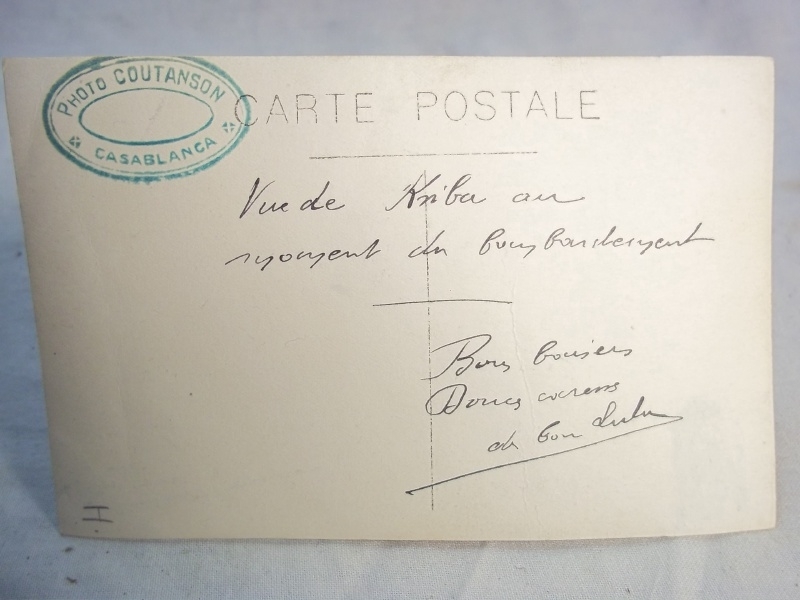 PHOTO COUTANSON
CASABLANCA
CARTE POSTALE
Vue de Kriba au
moment du bombardement
Bons baisers
Douces caresses
de ton
H